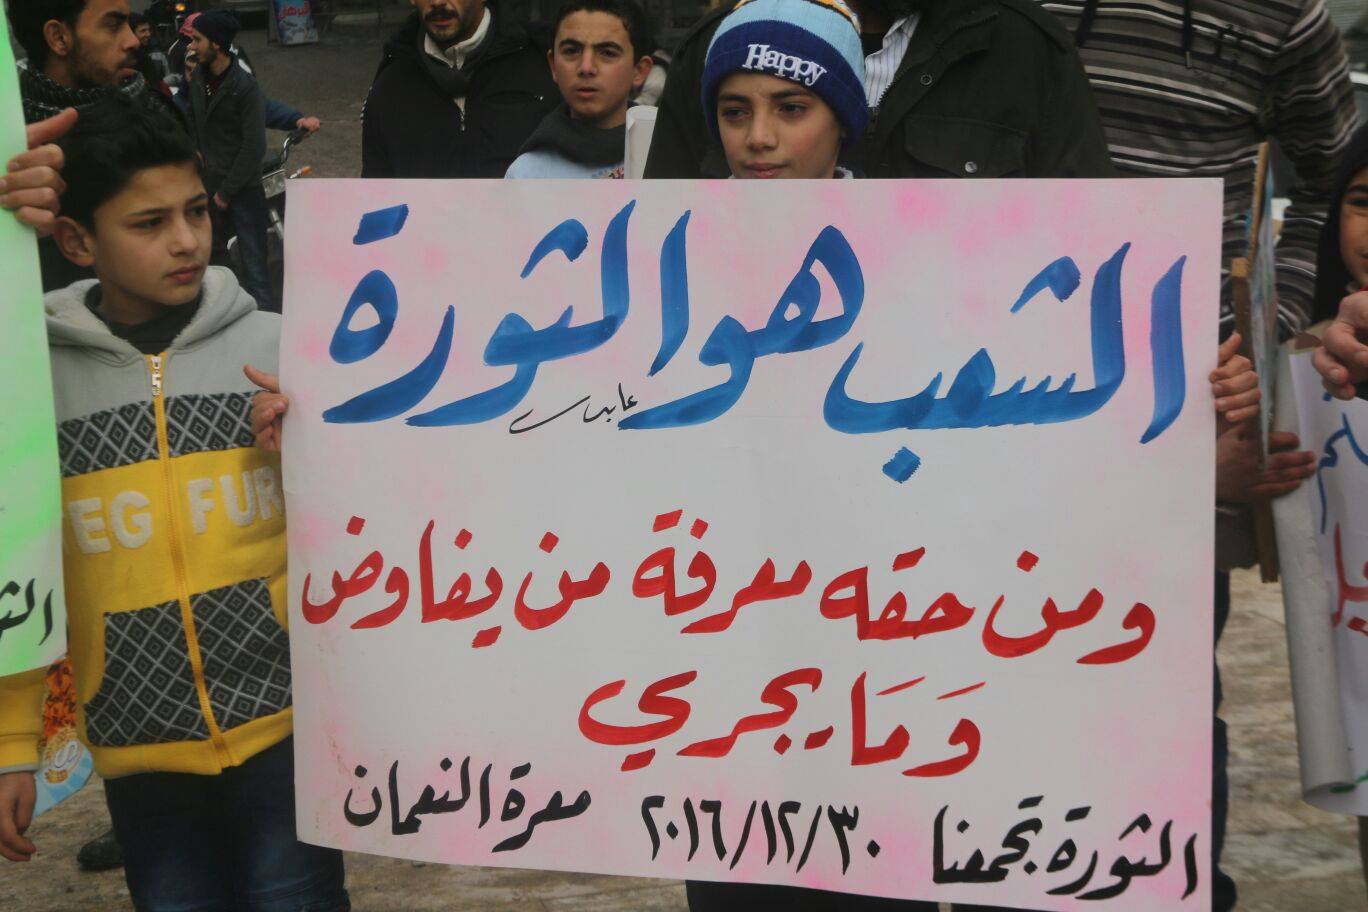 Happy
الشعب هو الثورة
ومن حقه معرفة من يفاوض
وَمَا يجري
الثورة تجمعنا ٢٠١٦/١٢/٣٠ معرة النعمان
EG FUR